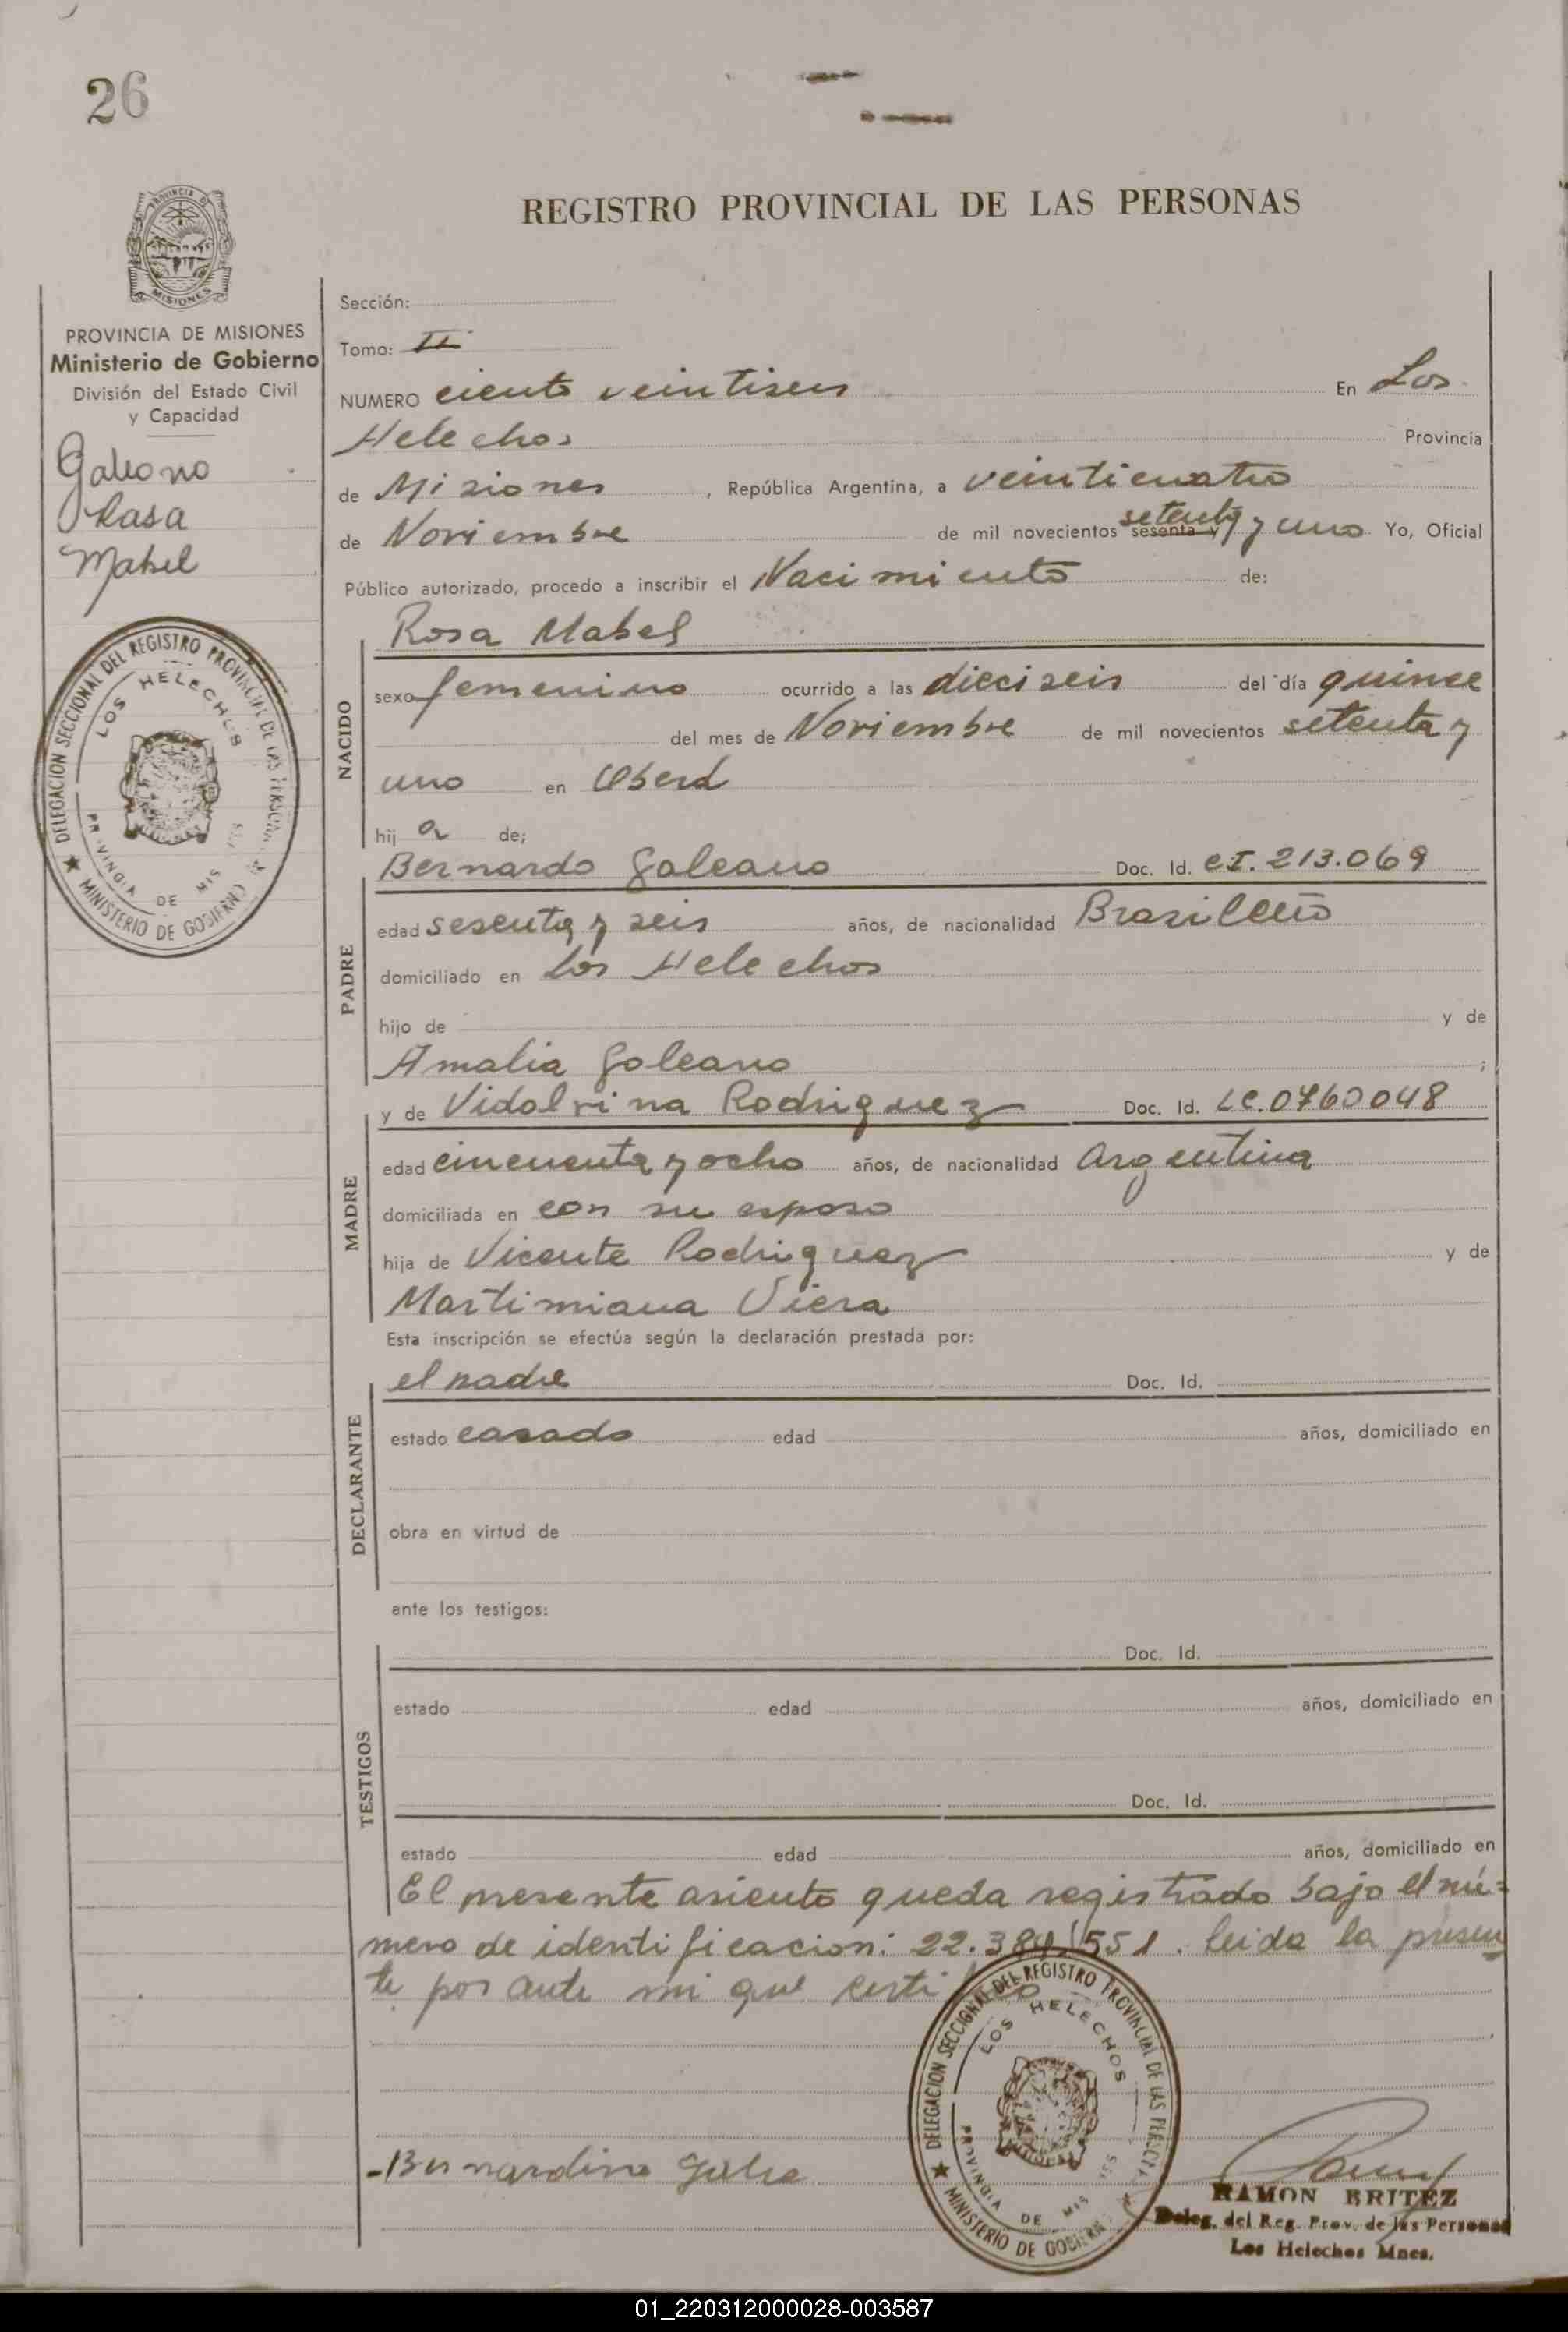 26
REGISTRO PROVINCIAL DE LAS PERSONAS
PROVINCIA DE MISIONES
Ministerio de Gobierno
División del Estado Civil
y Capacidad
Galeano
Rosa
Mabel
DELEGACION SECCIONAL DEL REGISTRO PROVINCIAL DE LAS PERSONAS
LOS HELECHOS
PROVINCIA DE MISIONES
MINISTERIO DE GOBIERNO
Sección:
Tomo: II
NUMERO ciento veintiseis En Los
Helechos Provincia
de Misiones, República Argentina, a veinticuatro
de Noviembre de mil novecientos sesenta y setenta y uno Yo, Oficial
Público autorizado, procedo a inscribir el Nacimiento de:
Rosa Mabel
NACIDO
sexo femenino ocurrido a las dieciseis del día quince
del mes de Noviembre de mil novecientos setenta y
uno en Oberá
hij a de;
Bernardo Galeano Doc. Id. CI. 213.069
PADRE
edad sesenta y seis años, de nacionalidad Brasileño
domiciliado en Los Helechos
hijo de y de
Amalia Galeano ;
y de Vidalvina Rodriguez Doc. Id. LC.0760048
MADRE
edad cincuenta y ocho años, de nacionalidad Argentina
domiciliada en con su esposo
hija de Vicente Rodriguez y de
Martimiana Viera
Esta inscripción se efectúa según la declaración prestada por:
el padre Doc. Id.
DECLARANTE
estado casado edad años, domiciliado en
obra en virtud de
ante los testigos:
Doc. Id.
TESTIGOS
estado edad años, domiciliado en
Doc. Id.
estado edad años, domiciliado en
El presente asiento queda registrado bajo el nú=
mero de identificacion: 22.384.551. leida la presen
te por ante mi que certifico
DELEGACION SECCIONAL DEL REGISTRO PROVINCIAL DE LAS PERSONAS
LOS HELECHOS
PROVINCIA DE MISIONES
MINISTERIO DE GOBIERNO
-Bernardino
RAMON BRITEZ
Deleg. del Reg. Prov. de las Personas
Los Helechos Mnes.
01_220312000028-003587